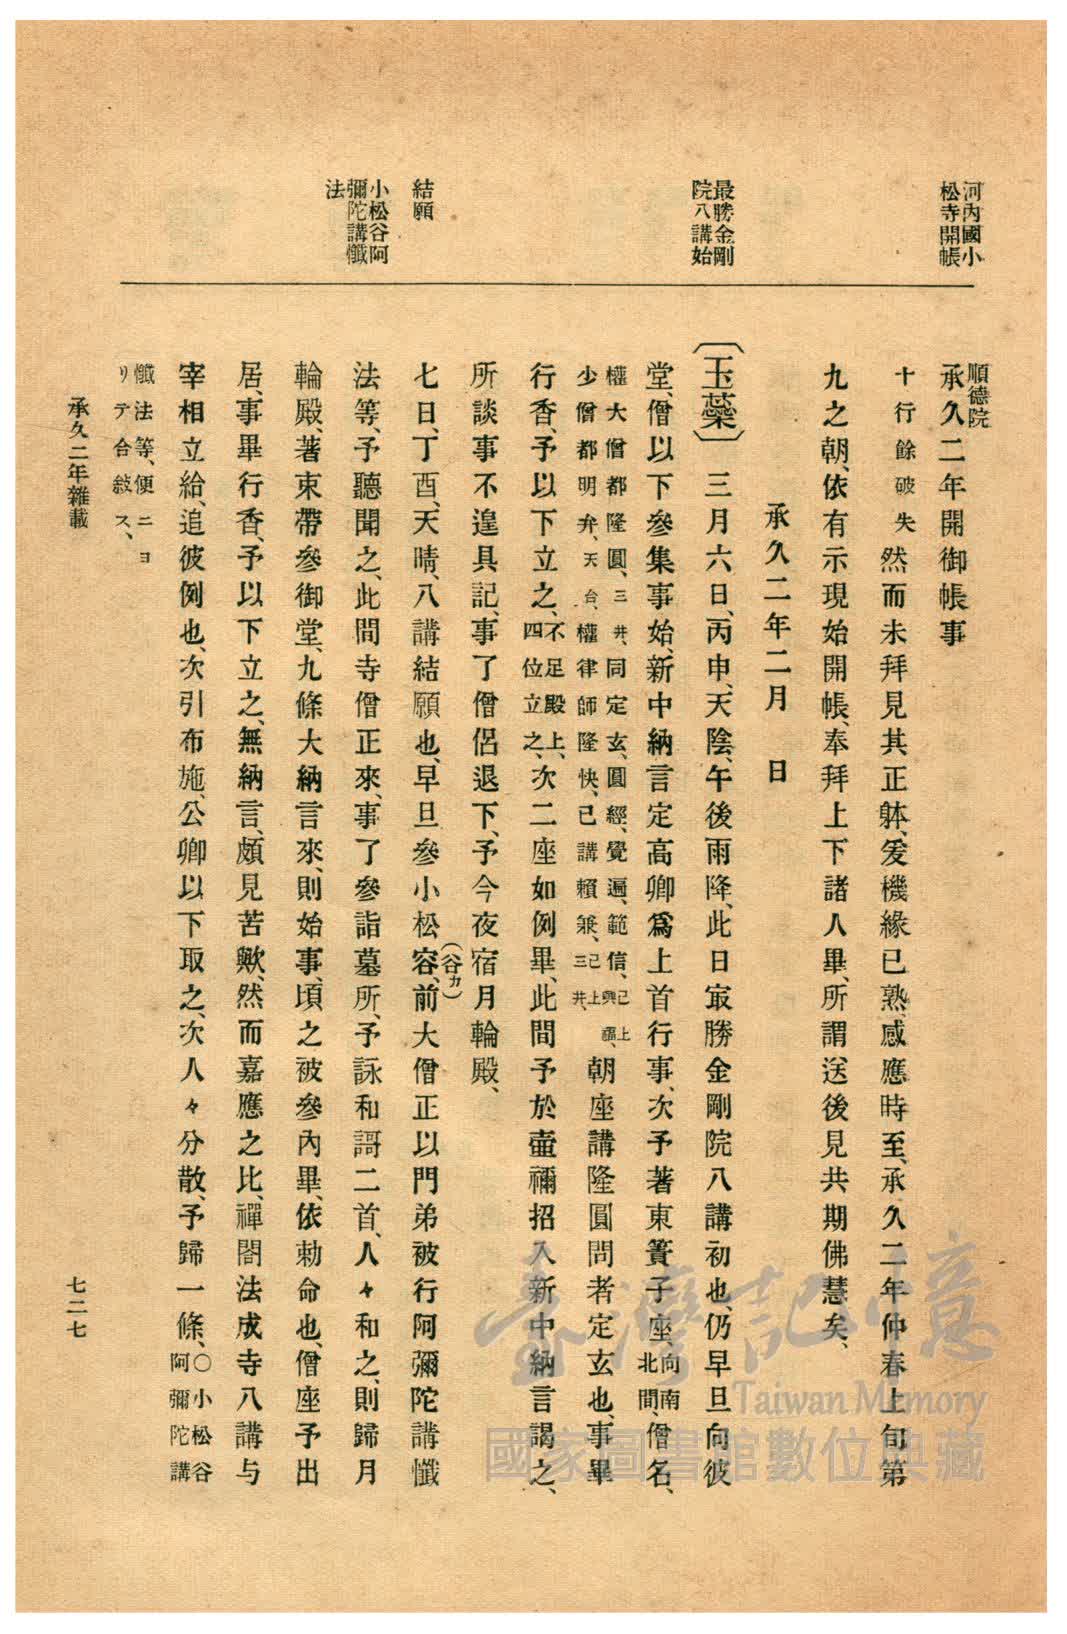 河內國小
松寺開帳
最勝金剛
院八講始
結願
小松谷阿
彌陀講懺
法
順德院
承久二年開御帳事
十行餘破失然而未拜見其正躰、爰機緣已熟、感應時至、承久二年仲春上旬第
九之朝、依有示現始開帳、奉拜上下諸人畢、所謂送後見共期佛慧矣、
承久二年二月　日
〔玉蘂〕三月六日、丙申、天陰、午後雨降、此日㝡勝金剛院八講初也、仍早旦向彼
堂、僧以下參集事始、新中納言定高卿爲上首行事、次予著東簀子座、向南北間、僧名、
權大僧都隆圓、三井、同定玄、圓經、覺遍、範信、已上興福、
少僧都明弁、天台、權律師隆快、已講賴兼、已上三井、朝座講隆圓問者定玄也、事畢
行香、予以下立之、不足殿上、四位立之、次二座如例畢、此間予於壷禰招入新中納言謁之、
所談事不遑具記、事了僧侶退下、予今夜宿月輪殿、
七日、丁酉、天晴、八講結願也、早旦參小松容、前大僧正以門弟被行阿彌陀講懺
（谷カ）
法等、予聽聞之、此間寺僧正來、事了參詣墓所、予詠和謌二首、人々和之、則歸月
輪殿、著束帶參御堂、九條大納言來、則始事、頃之被參內畢、依勅命也、僧座予出
居、事畢行香、予以下立之、無納言、頗見苦歟、然而嘉應之比、禪閤法成寺八講与
宰相立給、追彼例也、次引布施、公卿以下取之、次人々分散、予歸一條、〇小松谷阿彌陀講
懺法等、便ニヨ
リテ合敍ス、
承久二年雜載
七二七
臺灣記憶
Taiwan Memory
國家圖書館數位典藏